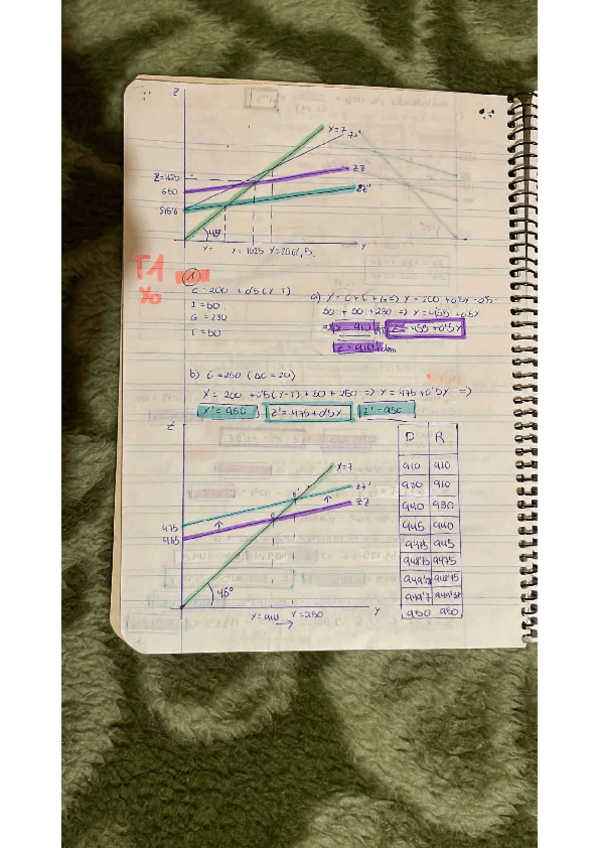 Z
Y=Z
ZZ'
ZZ
ZZ''
Z=1625
650
45º
Y= Y=1625 Y=2062,5. Y
T1
①
C=200 + 0'5(Y-T)
I=50
G=230
T=50
a) Y=C+I+G=> Y=200 +0'5Y-0'5·
50 + 50 + 230 => Y=455+0'5Y
=> Y=910 Z=455+0'5Y
Z=910
b) G=250 (ΔG=20)
Y= 200 +0'5(Y-T)+50+250 => Y=475+0'5Y =>
Y'=950 Z'=475+0'5Y Z'=950
Z
Y=Z
ZZ'
ZZ
475
465
45º
Y=910 Y=950 Y
→
D R
910 910
930 910
940 930
945 940
947'5 945
948'75 947'5
949'7
950 950